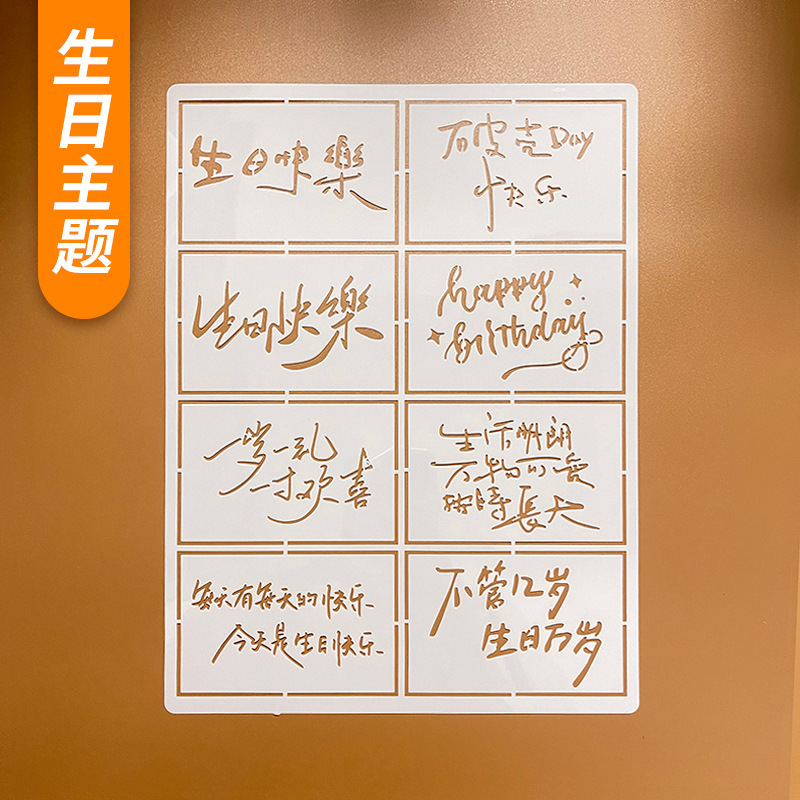 生日主题
生日快樂
破壳Day
快乐
生日快樂
happy
birthday
一岁一礼
一寸欢喜
生活明朗
万物可爱
按時長大
每天有每天的快乐
今天是生日快乐
不管几岁
生日万岁